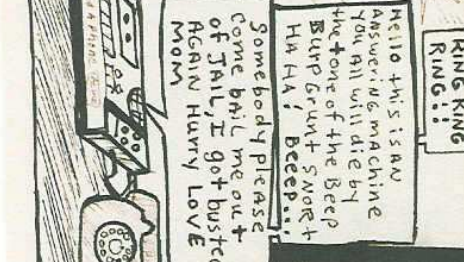 RING RING
RING!!
Hello this is AN
Answering machine
you All will die by
the tone of the Beep
Burp Grunt SNORT
HA HA! Beeep...
Somebody please
Come bail me out
of JAIL, I got busted
AGAIN Hurry LOVE
MOM